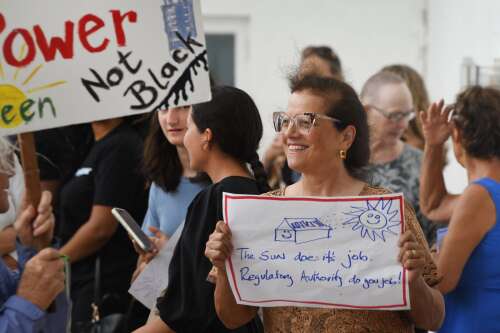 Power
Not Black
Green
The Sun does it's job.
Regulatory Authority do you job!